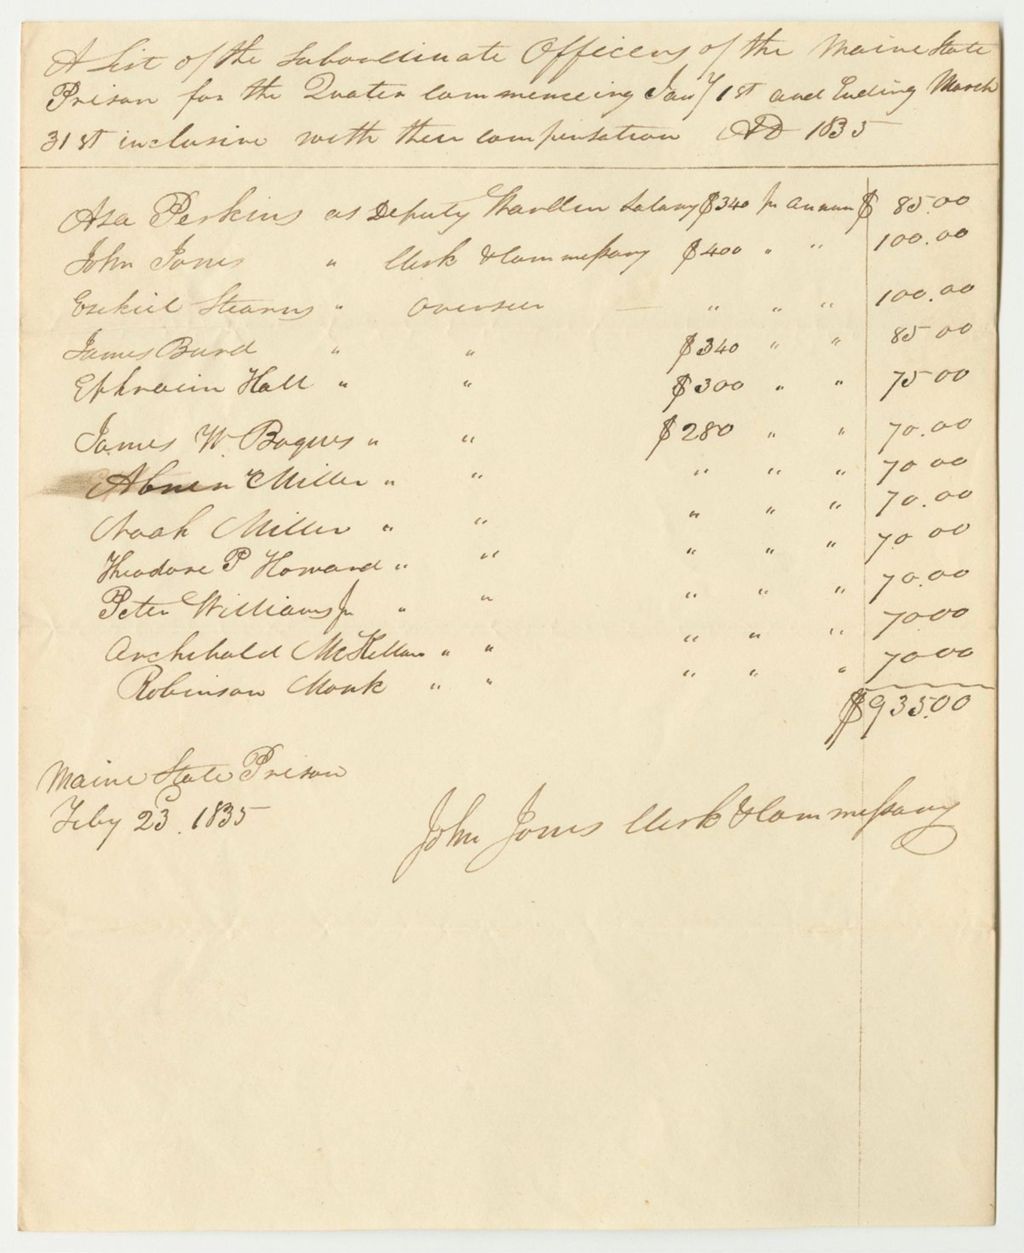 A List of the Subordinate Officers of the Maine State
Prison for the Quater commenceing Jany 1st and Ending March
31st inclusive with their compensation AD 1835
Asa Perkins as Deputy Warden Salary $340 pr Annum $ 85.00
John Jones " Clerk & Commessary $400 " " 100.00
Ezekiel Stearns " overseer — " " " 100.00
James Burd " " $340 " " 85 00
Ephraim Hall " " $300 " " 75 00
James W. Bogues " " $280 " " 70.00
Abner Miller " " " " " 70 00
Noah Miller " " " " " 70.00
Theodore P Howard " " " " " 70 00
Peter Williams Jr " " " " " 70.00
Archibald McKellar " " " " " 70 00
Robinson Monk " " " " " 70 00
$935.00
Maine State Prison
Feby 23. 1835
John Jones Clerk & Commessary